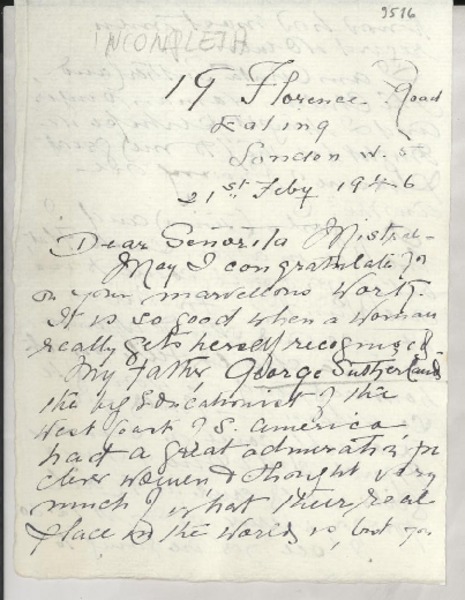 9516
INCOMPLETA
19 Florence Road
Ealing
London W. 5
21st Feby 1946
Dear Senorita Mistral
May I congratulate you
on your marvellous work.
It is so good when a woman
really gets herself recognized
My father, George Sutherland
the big Educationist of the
West Coast of S. America
had a great admiration for
clever women & thought very
much of what their real
place in the World is, but you